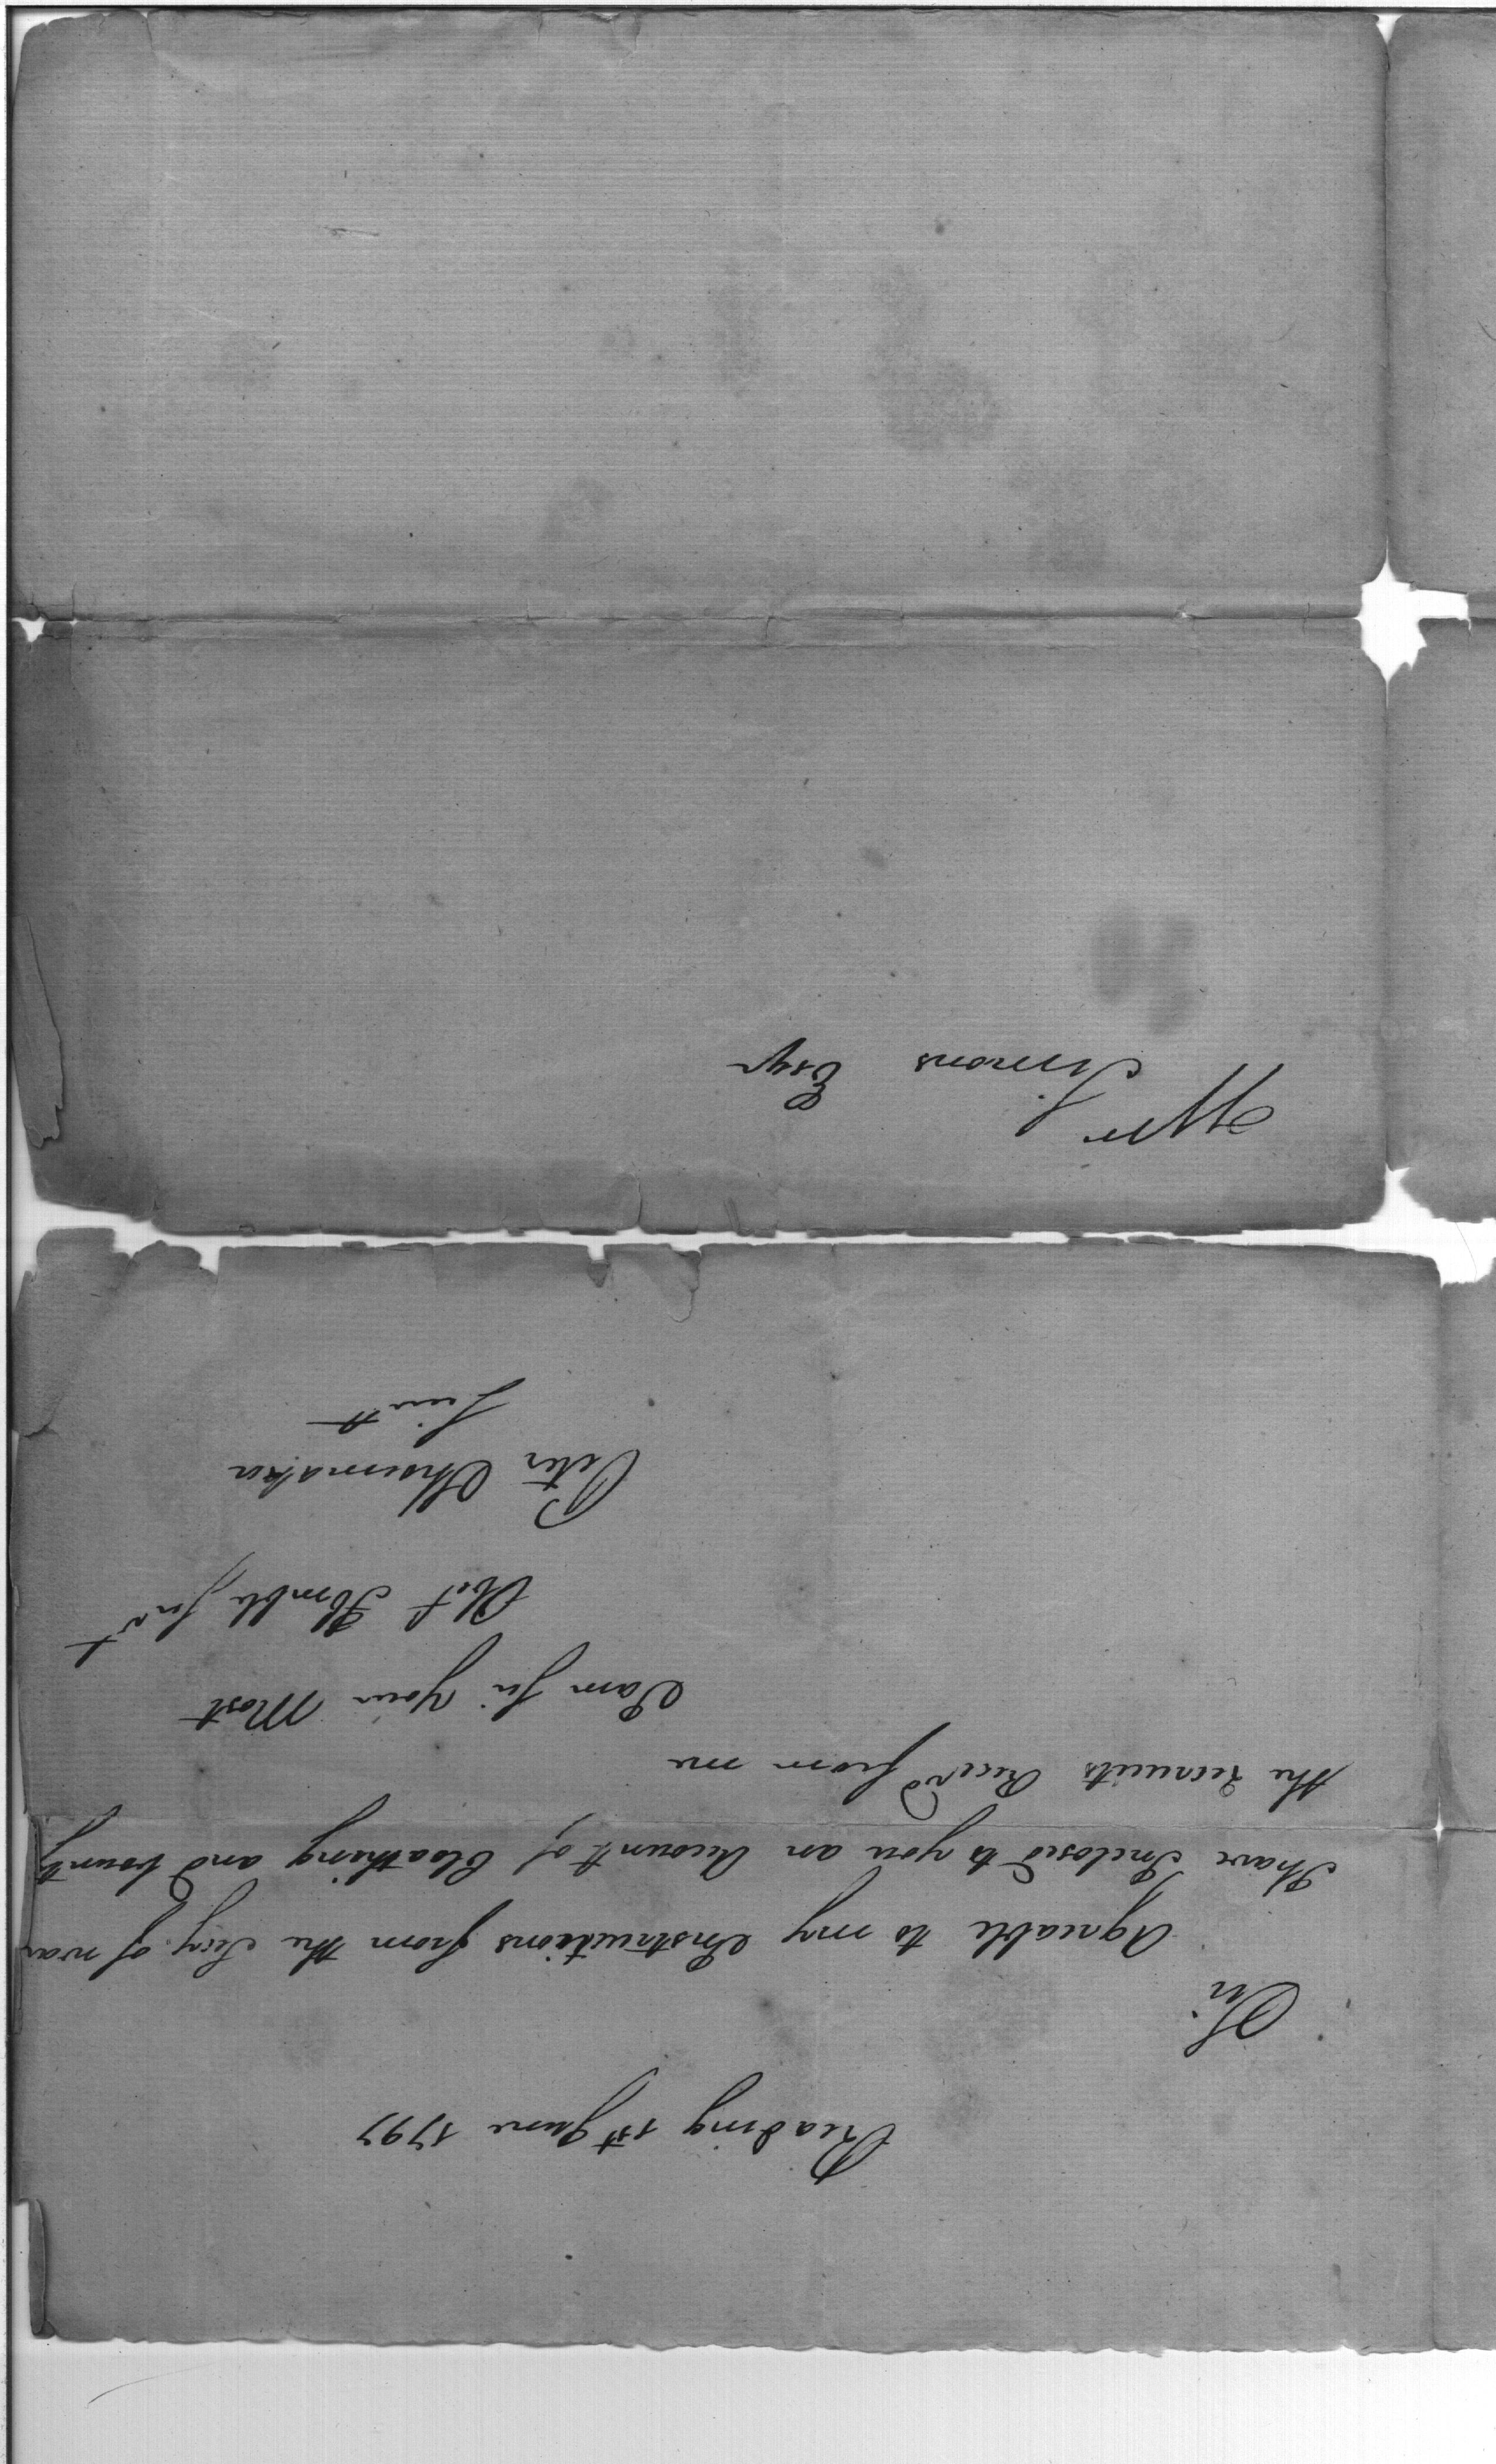 Reading 1st June 1797
Sir
Agreable to my Instructions from the Secy. of war
I have Inclosed to you an Account of Cloathing and bounty
the recruits Receivd from me
I am Sir your Most
Obt Hmble Sert
Peter Shoemaker
Lieutt
Wm
Simons Esqr